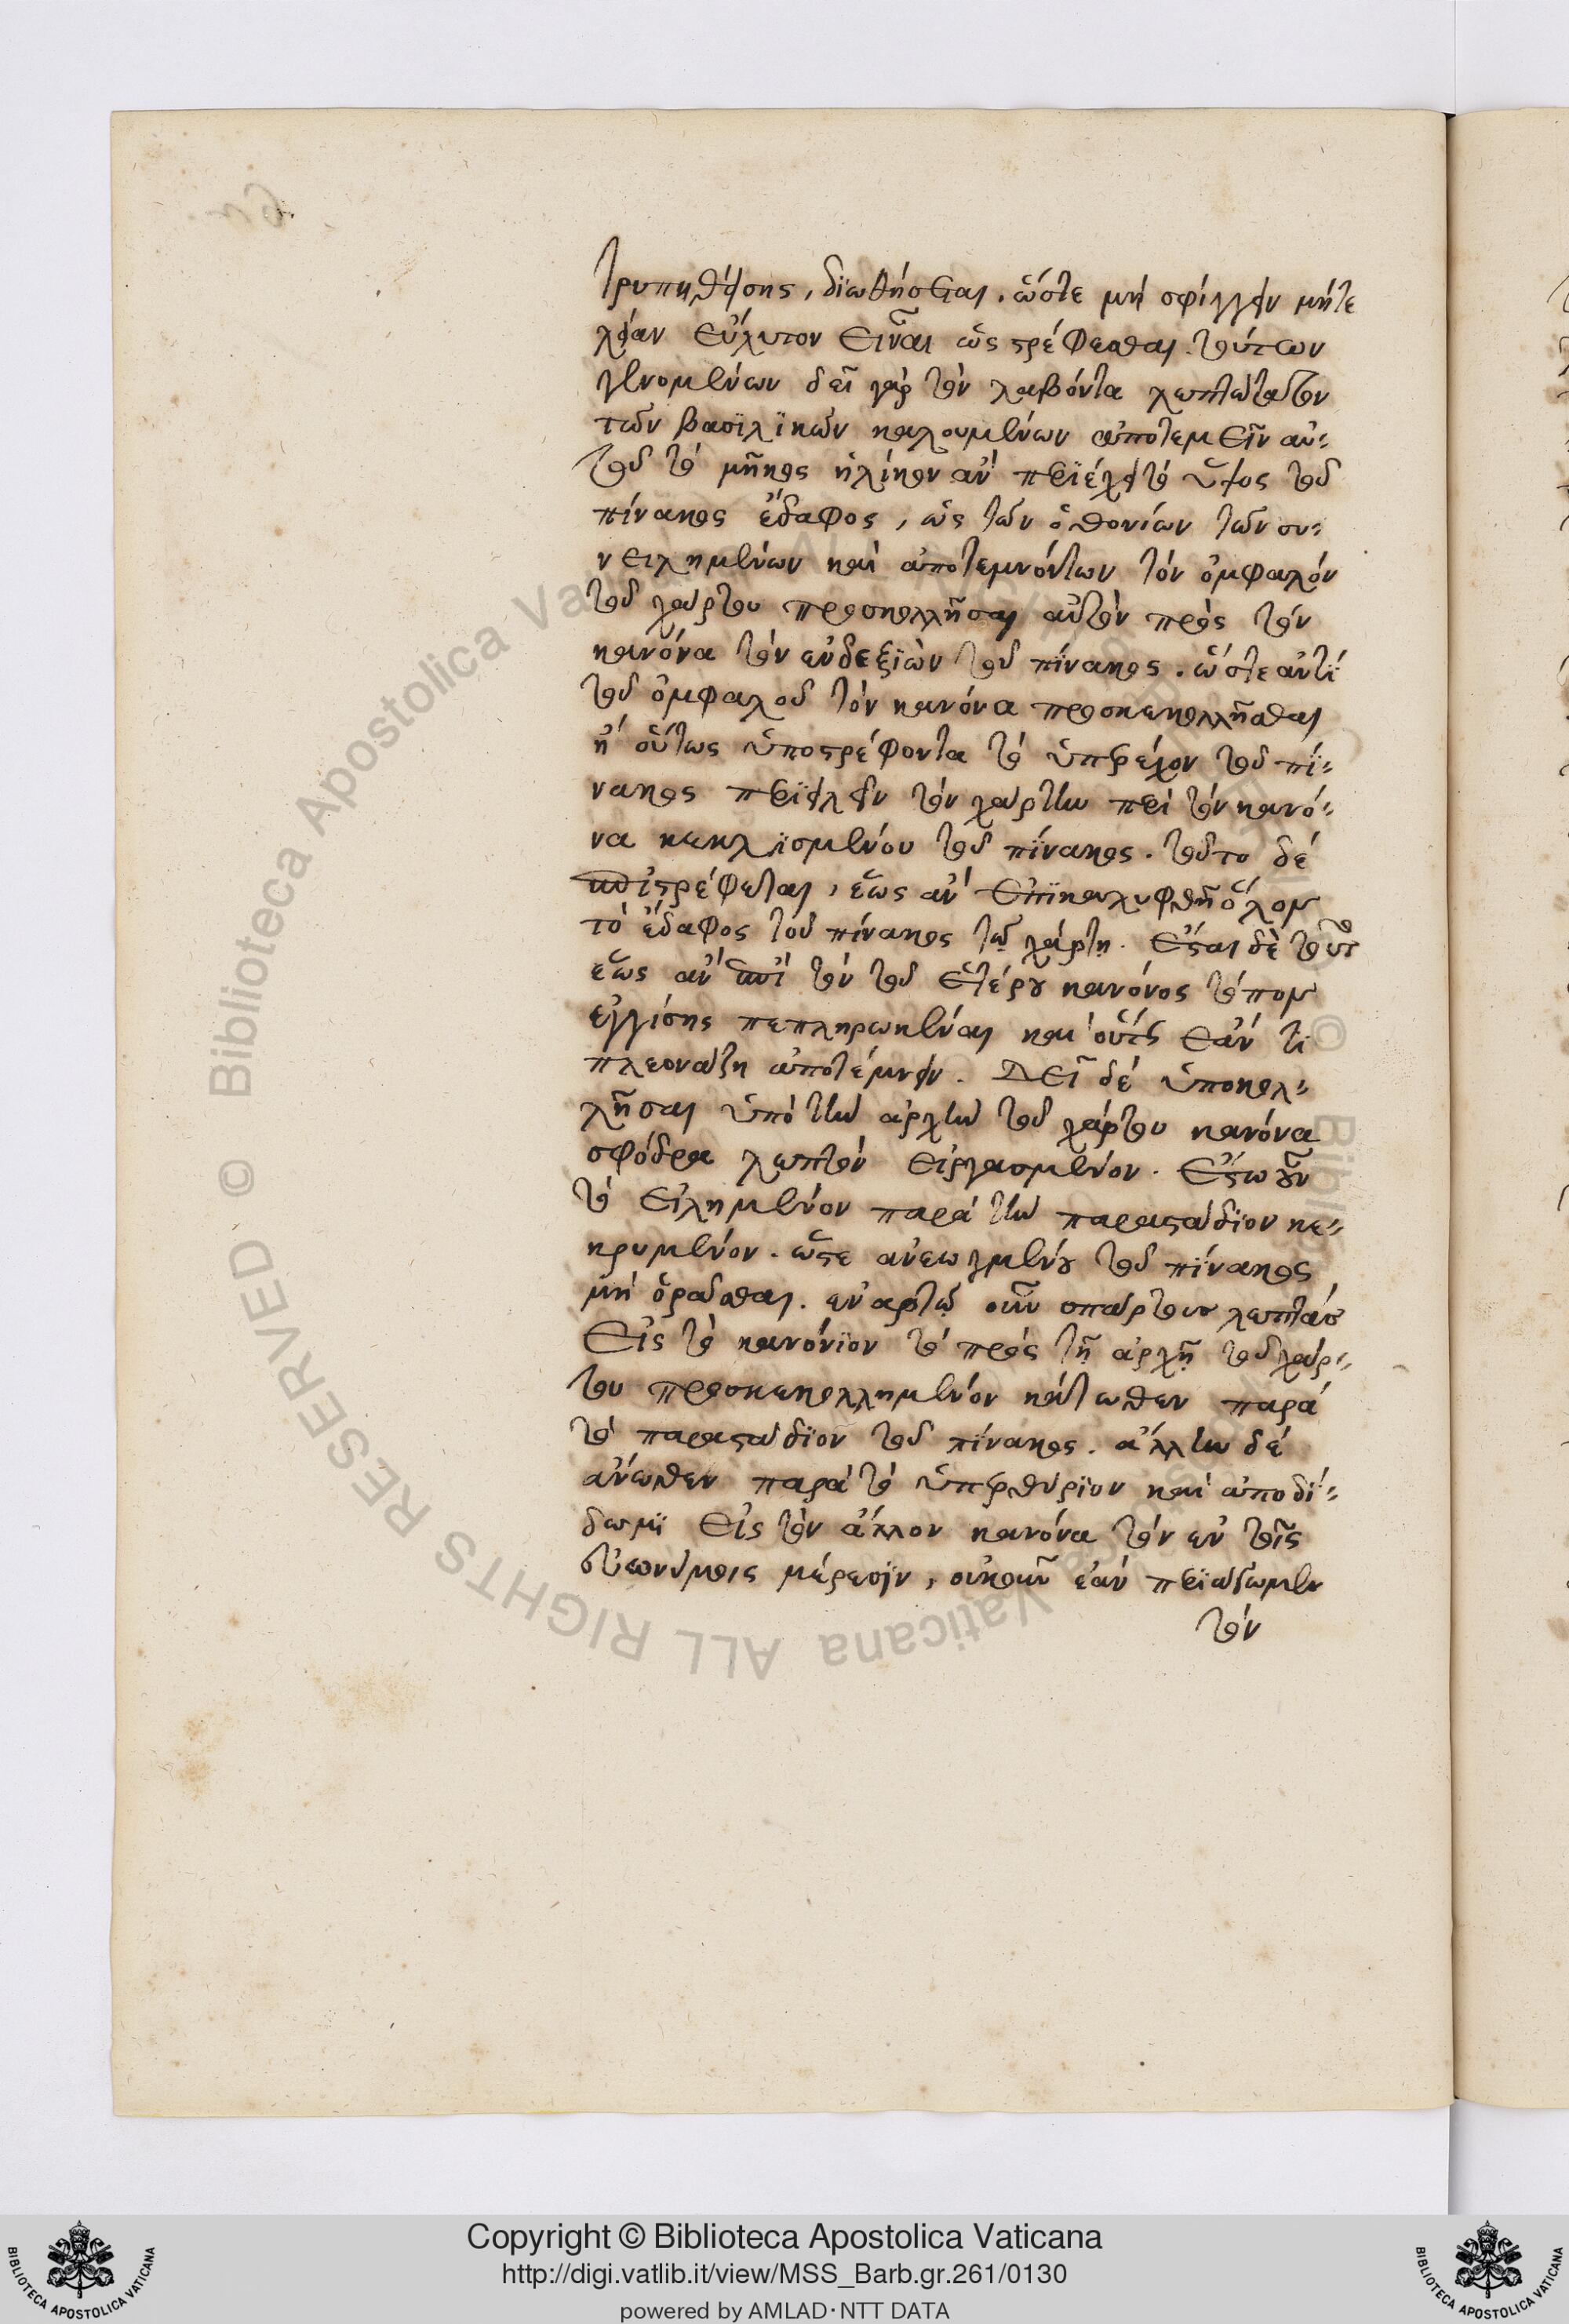 τρυπηθείσης, διωθήσεται. ὥστε μὴ σφίγγειν μήτε
λείαν εὔλυτον εἶναι ὡς στρέφεσθαι. τούτων
γενομένων δεῖ γὰρ τὸν λαβόντα λεπτότατον
τῶν βασιλικῶν καλουμένων ἀποτεμεῖν αὐ-
τοῦ τὸ μῆκος ἡλίκον ἂν περιέχει τὸ ὕψος τοῦ
πίνακος ἔδαφος, ὡς τῶν ὀθονίων τῶν συ-
νειλημένων καὶ ἀποτεμνόντων τὸν ὀμφαλόν
τοῦ χάρτου προσκολλῆσαι αὐτὸν πρὸς τὸν
κανόνα τὸν ἐνδεξιὸν τοῦ πίνακος. ὥστε ἀντί
τοῦ ὀμφαλοῦ τὸν κανόνα προσκεκολλῆσθαι
ἢ οὕτως ὑποστρέφοντα τὸ ὑπερέχον τοῦ πί-
νακος περιειλεῖν τὸν χάρτην περὶ τὸν κανό-
να κεκλϊσμένου τοῦ πίνακος. τοῦτο δέ
ἐπιστρέφεται, ἕως ἂν ἐπικαλυφθῇ ὅλον
τὸ ἔδαφος τοῦ πίνακος τῷ χάρτῃ. ἔσται δὲ τοῦτο
ἕως ἂν ἐπὶ τὸν τοῦ ἑτέρου κανόνος τόπον
ἐγγίσης πεπληρωκέναι καὶ οὕτως ἐάν τι
πλεονάζη ἀποτέμνειν. Δεῖ δέ ὑποκολ-
λῆσαι ὑπὸ τὴν ἀρχὴν τοῦ χάρτου κανόνα
σφόδρα λεπτόν εἰργασμένον. ἔστω οὖν
τὸ εἰλημένον παρὰ τὴν παραστάδιον κε-
κρυμένον. ὥστε ἀνεωγμένου τοῦ πίνακος
μὴ ὁρᾶσθαι. ἐναρτῶ οὖν σπάρτους λεπτάς
Εἰς τὸ κανόνϊον τὸ πρὸς τῇ ἀρχῇ τοῦ χάρ-
του προσκεκολλημένον κάτωθεν παρά
τὸ παραστάδϊον τοῦ πίνακος. ἄλλην δέ
ἄνωθεν παρὰ τὸ ὑπερθύριον καὶ ἀποδί-
δωμϊ εἰς τὸν ἄλλον κανόνα τὸν ἐν τοῖς
εὐωνύμοις μέρεσϊν, οὐκοῦν ἐάν περιάξωμεν
τὸν
Copyright © Biblioteca Apostolica Vaticana
http://digi.vatlib.it/view/MSS_Barb.gr.261/0130
powered by AMLAD·NTT DATA